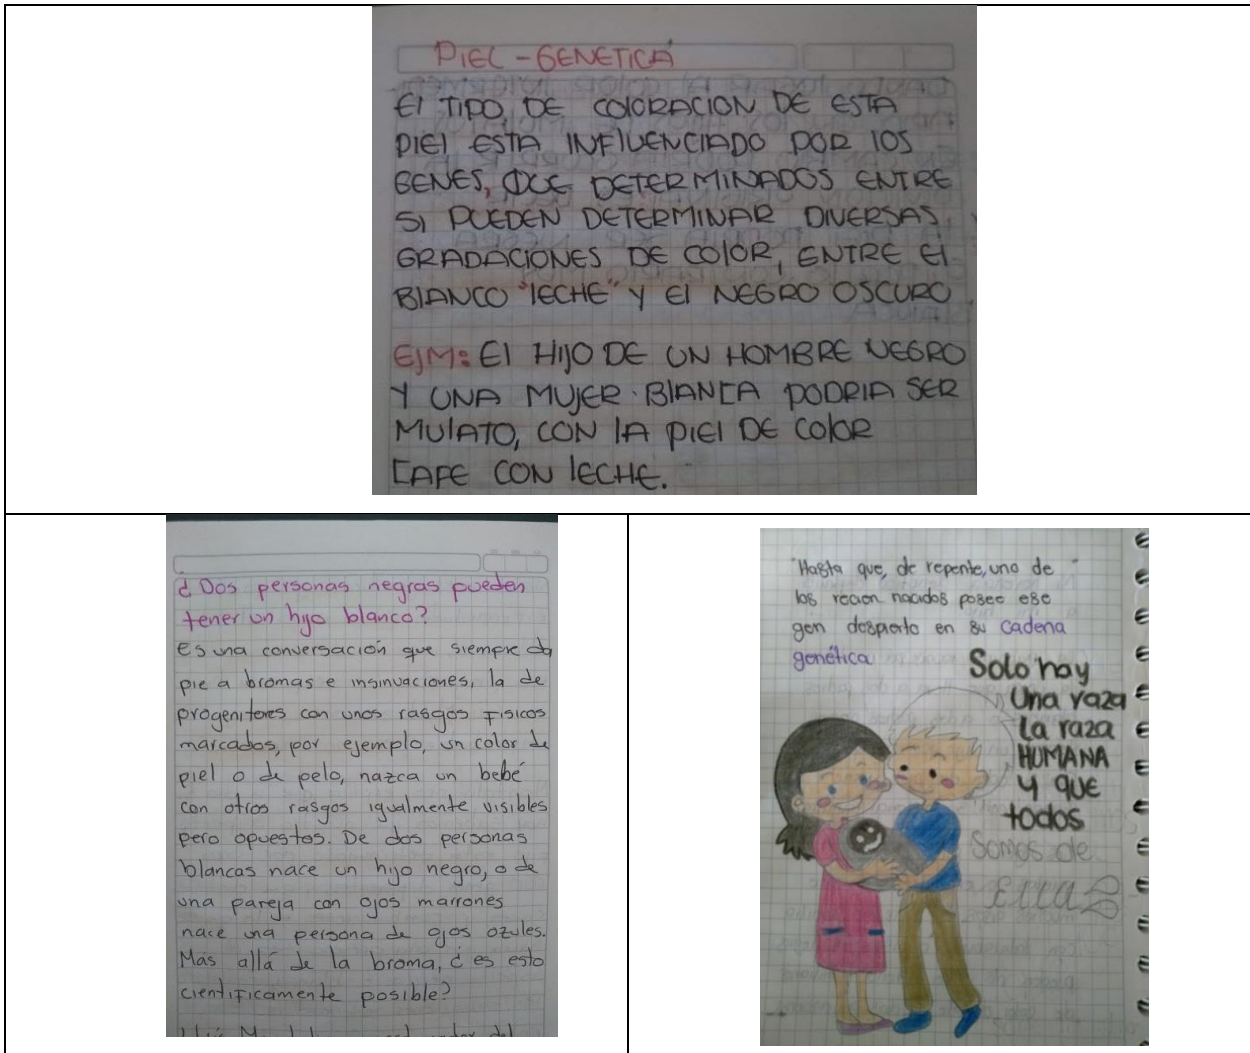 PIEL - GENETICA
El TIPO DE COlORACION DE ESTA
PIEl ESTA INFlUENCIADO POR lOS
GENES, QUE DETERMINADOS ENTRE
SI PUEDEN DETERMINAR DIVERSAS
GRADACIONES DE COlOR, ENTRE El
BlANCO "lECHE" Y El NEGRO OSCURO
EJM: El HIJO DE UN HOMBRE NEGRO
Y UNA MUJER BlANCA PODRIA SER
MUlATO, CON lA PIEl DE COlOR
CAFE CON lECHE.
¿Dos personas negras pueden
tener un hijo blanco?
Es una conversación que siempre da
pie a bromas e insinuaciones, la de
progenitores con unos rasgos Fisicos
marcados, por ejemplo, un color de
piel o de pelo, nazca un bebé
con otros rasgos igualmente visibles
pero opuestos. De dos personas
blancas nace un hijo negro, o de
una pareja con ojos marrones
nace una persona de ojos azules.
Más allá de la broma, ¿es esto
cientificamente posible?
"Hasta que, de repente, uno de
los recien nacidos posee ese
gen despierto en su cadena
genética
Solo hay
Una raza
La raza
HUMANA
y que
todos
Somos de
Ella